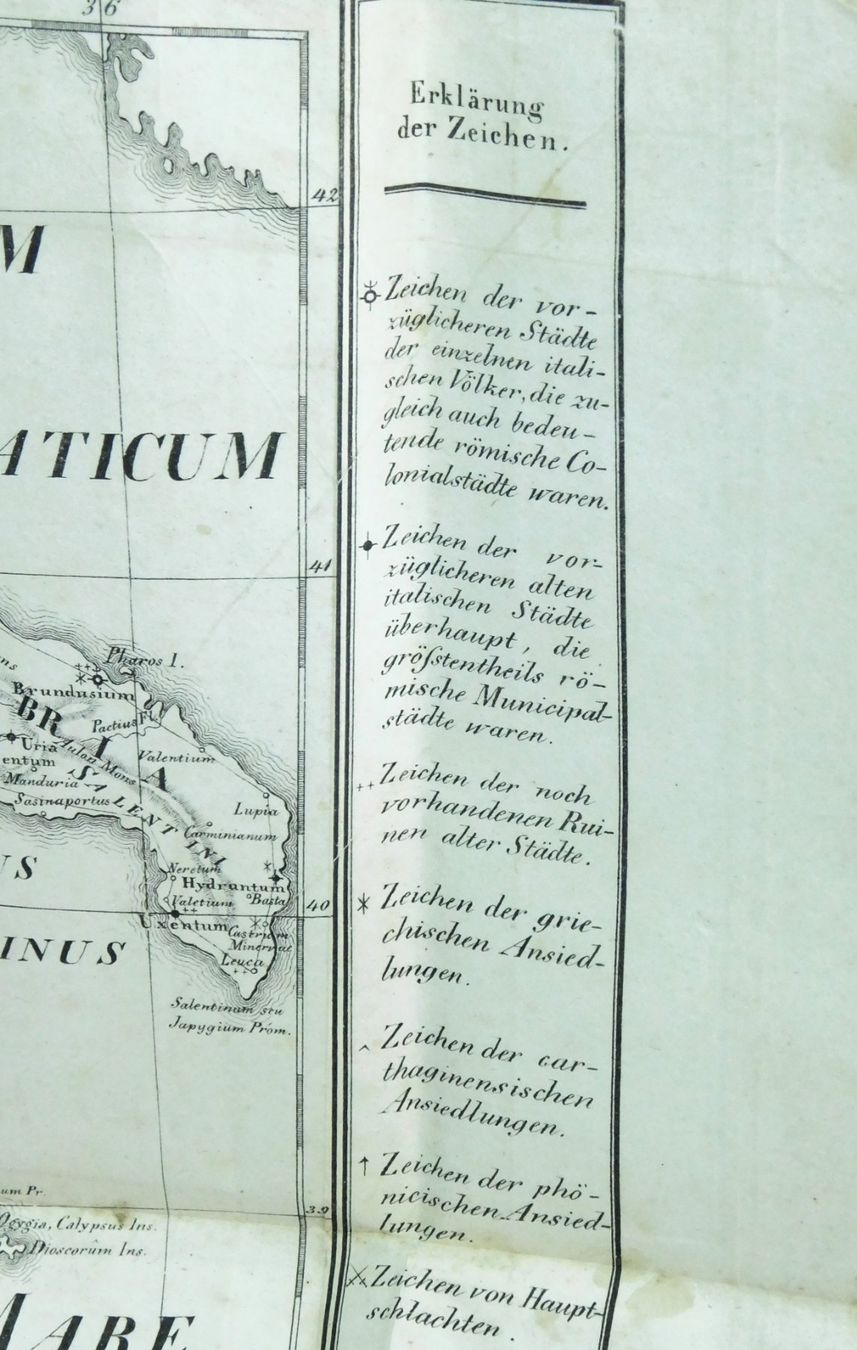 36
42
M
ATICUM
41
Pharos I.
Brundusium
BR
Pactius Fl.
I
Uria
Aulon Mons
Valentium
A
entum
Manduria
SALENTINI
Sasinaportus
Lupia
Carminianum
US
Neretum
Hydruntum
Valetium
Basta
40
Uxentum
Castrum
Minervae
INUS
Leuca
Salentinum seu
Japygium Prom.
um Pr.
39
Ogygia, Calypsus Ins.
Dioscorûm Ins.
MARE
Erklärung
der Zeichen.
Zeichen der vor-
züglicheren Städte
der einzelnen itali-
schen Völker, die zu-
gleich auch bedeu-
tende römische Co-
lonialstädte waren.
Zeichen der vor-
züglicheren alten
italischen Städte
überhaupt, die
größtentheils rö-
mische Municipal-
städte waren.
Zeichen der noch
vorhandenen Rui-
nen alter Städte.
Zeichen der grie-
chischen Ansied-
lungen.
Zeichen der car-
thaginensischen
Ansiedlungen.
Zeichen der phö-
nicischen Ansied-
lungen.
Zeichen von Haupt-
schlachten.